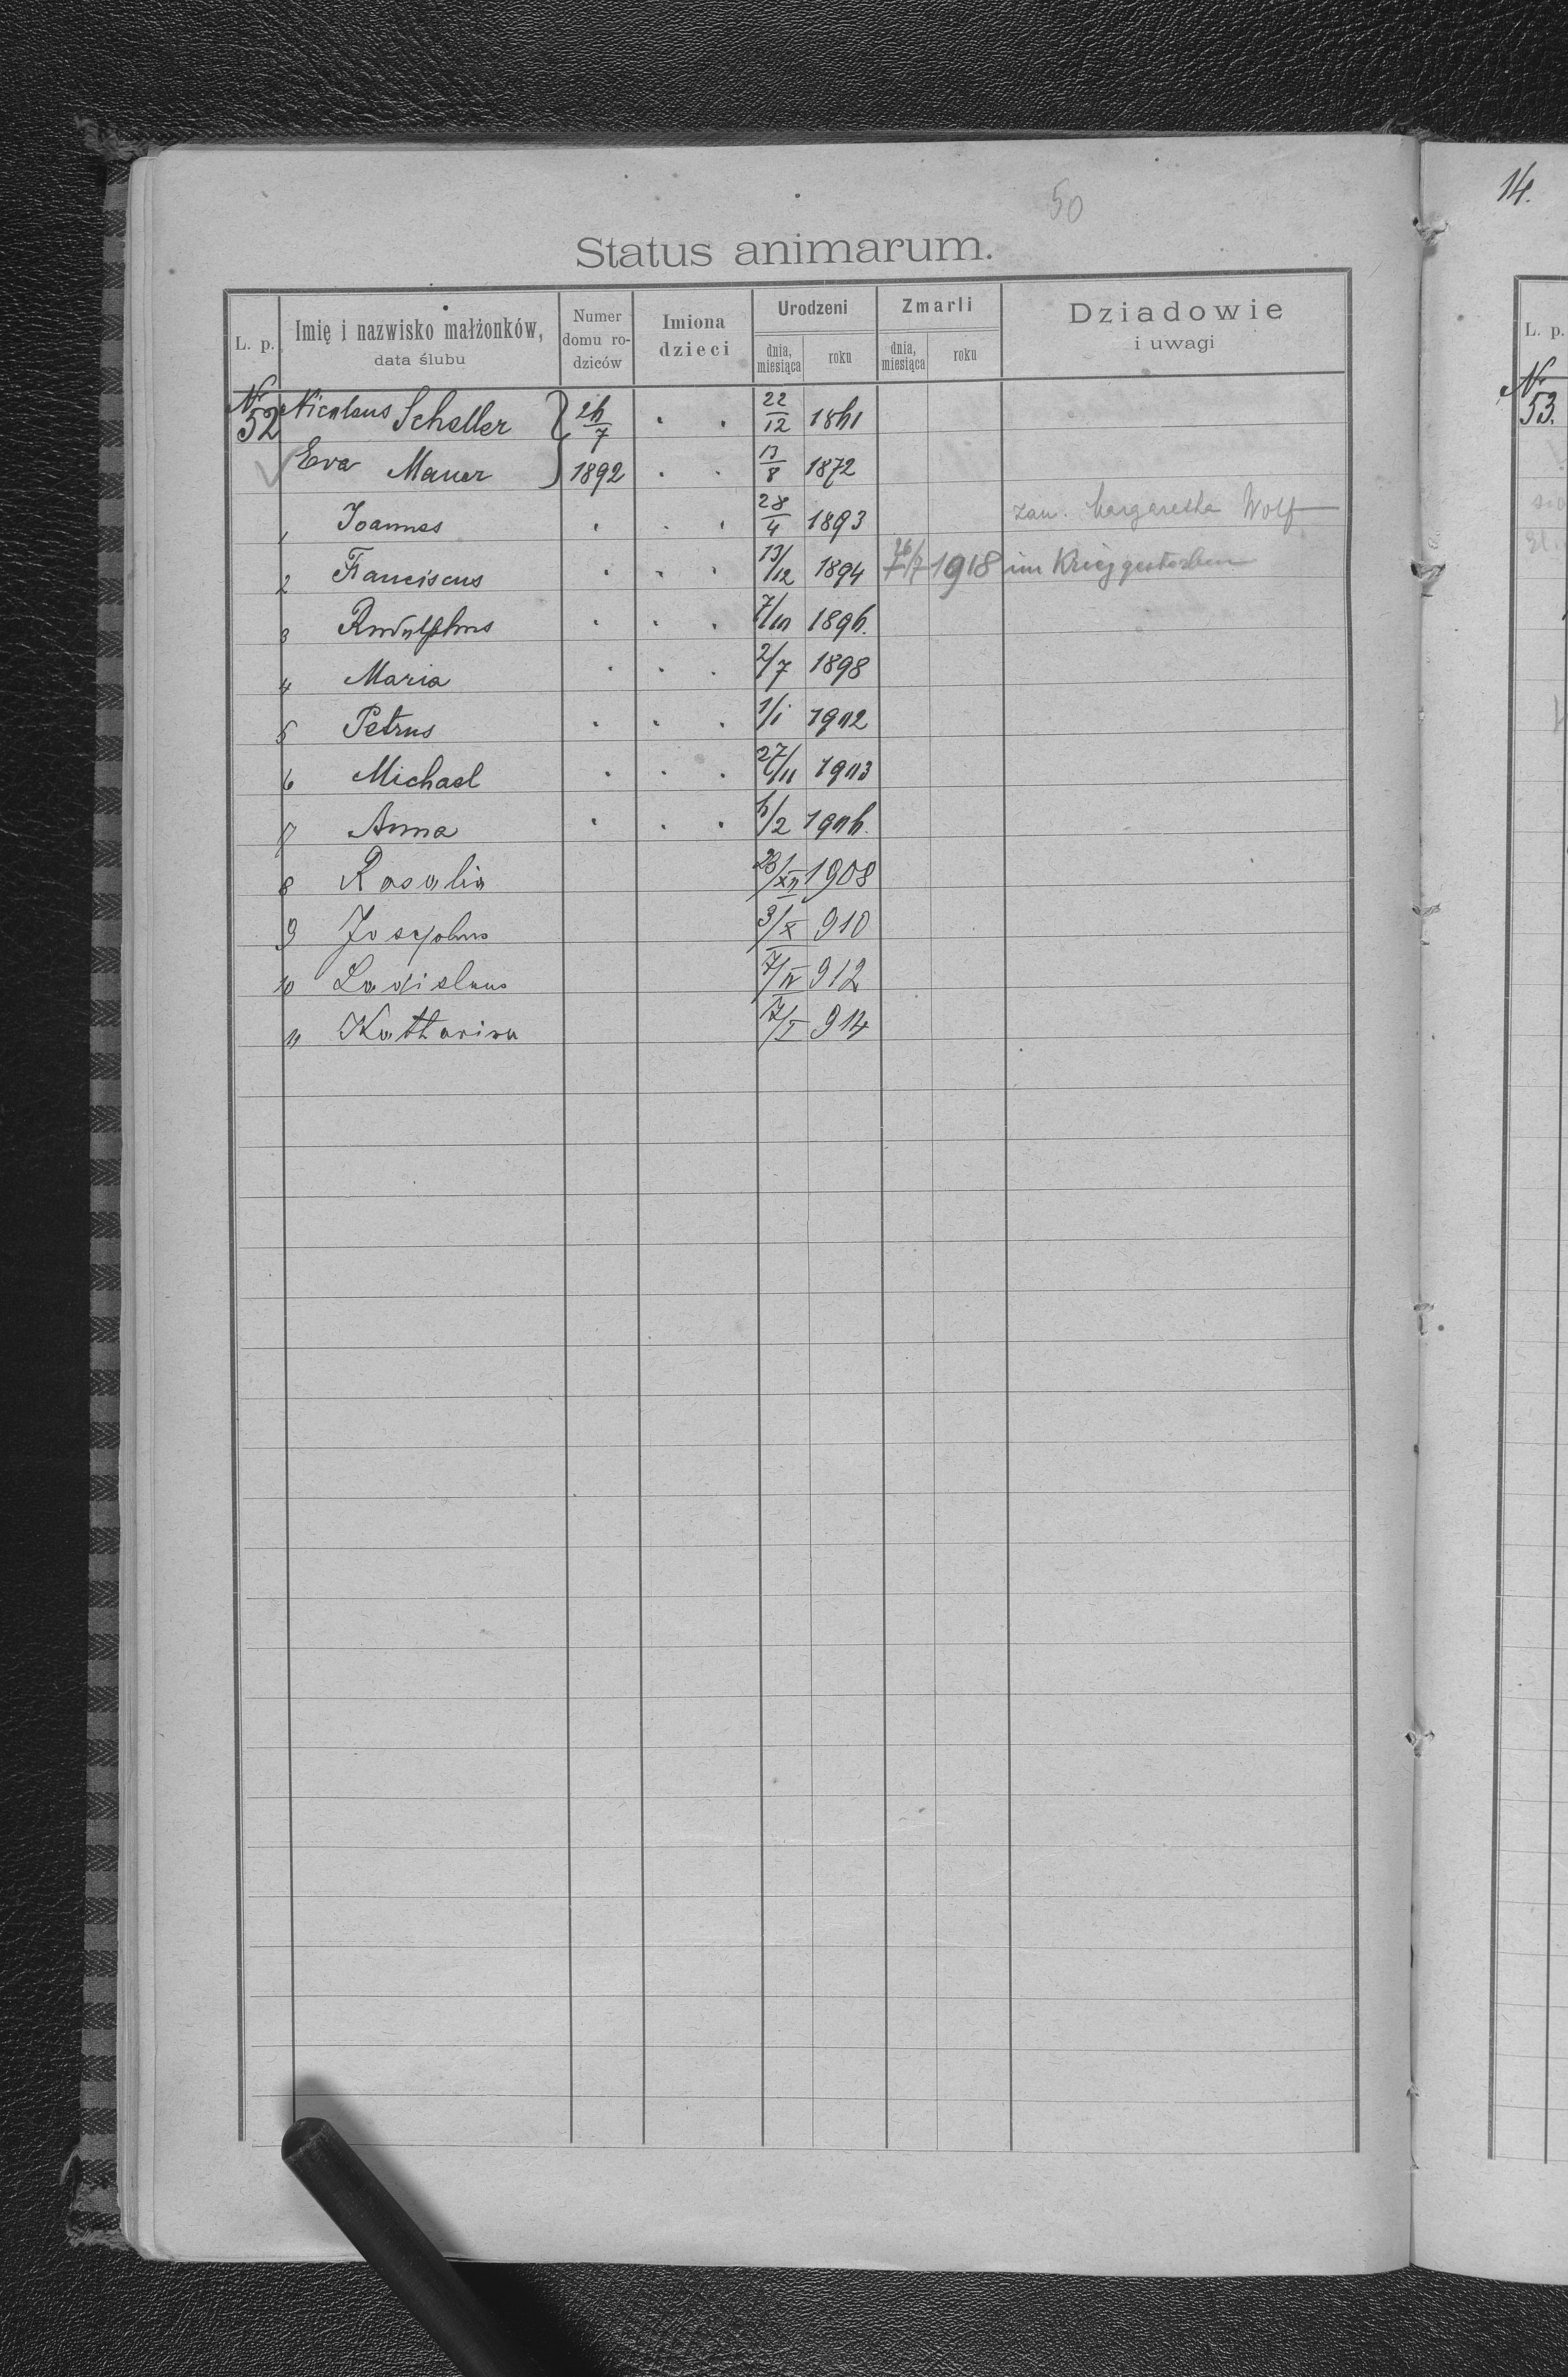 50
14.
Status animarum.
L. p. Imię i nazwisko małżonków, data ślubu Numer domu rodziców Imiona dzieci Urodzeni dnia, miesiąca roku Zmarli dnia, miesiąca roku Dziadowie i uwagi
No 52 Nicolaus Scheller 26/7 22/12 1861
Eva Mauer 1892 13/8 1872
1 Joannes 28/4 1893 Margaretha Wolf
2 Franciscus 13/12 1894 1918 im Krieg gestorben
3 Rudolphus 7/10 1896.
4 Maria 2/7 1898
5 Petrus 1/1 1902
6 Michael 27/11 1903
7 Anna 6/2 1906.
8 Rosalia 23/XII 1908
9 Josephus 3/X 910
10 Ladislaus 7/IV 912
11 Katharina 7/I 914
L. p.
No 53.